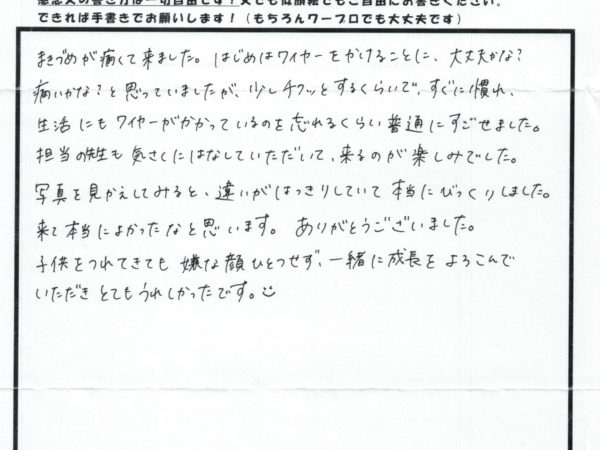 感想文の書き方は一切自由です！文でも似顔絵でもご自由にお書きください。
できれば手書きでお願いします！（もちろんワープロでも大丈夫です）
まきづめが痛くて来ました。はじめはワイヤーをかけることに、大丈夫かな？
痛いかな？と思っていましたが、少しチクッとするくらいで、すぐに慣れ、
生活にもワイヤーがかかっているのを忘れるくらい普通にすごせました。
担当の先生も気さくにはなしていただいて、来るのが楽しみでした。
写真を見かえしてみると、違いがはっきりしていて本当にびっくりしました。
来て本当によかったなと思います。ありがとうございました。
子供をつれてきても嫌な顔ひとつせず、一緒に成長をよろこんで
いただきとてもうれしかったです。